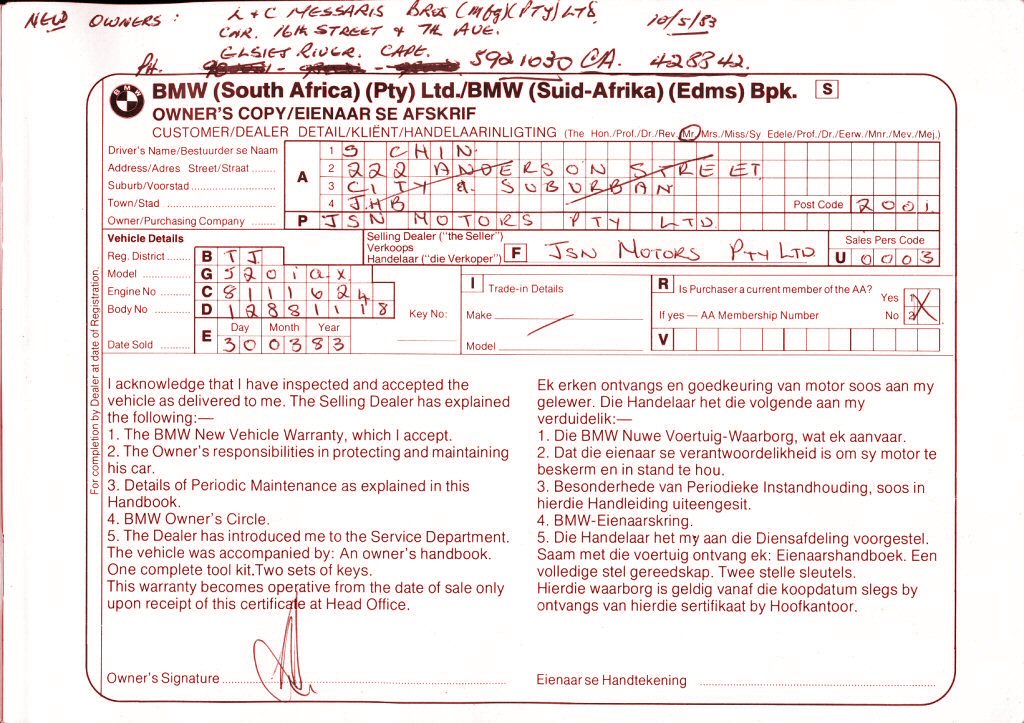 NEW OWNERS: L & C MESSARIS BROS (MFG)(PTY) LTD 10/5/83
CNR. 16TH STREET & 7TH AVE.
ELSIES RIVER. CAPE.
PH. 5921030 CA. 428342.
BMW (South Africa) (Pty) Ltd./BMW (Suid-Afrika) (Edms) Bpk. S
OWNER'S COPY/EIENAAR SE AFSKRIF
CUSTOMER/DEALER DETAIL/KLIËNT/HANDELAARINLIGTING (The Hon./Prof./Dr./Rev./Mr./Mrs./Miss/Sy Edele/Prof./Dr./Eerw./Mnr./Mev./Mej.)
Driver's Name/Bestuurder se Naam A 1 S CHIN
Address/Adres Street/Straat ........ 2 222 ANDERSON STREET
Suburb/Voorstad 3 CITY & SUBURBAN
Town/Stad 4 JHB Post Code 2001
Owner/Purchasing Company P JSN MOTORS PTY LTD
Vehicle Details
Selling Dealer ("the Seller")
Verkoops
Handelaar ("die Verkoper") F JSN MOTORS PTY LTD
Sales Pers Code
U 0003
Reg. District B TJ
Model G 520iax
Engine No C 8111624
Body No D 1288118
Key No:
Day Month Year
Date Sold E 300383
I Trade-in Details
Make
Model
R Is Purchaser a current member of the AA? Yes 1
If yes — AA Membership Number No 2 X
V
For completion by Dealer at date of Registration.
I acknowledge that I have inspected and accepted the
vehicle as delivered to me. The Selling Dealer has explained
the following:—
1. The BMW New Vehicle Warranty, which I accept.
2. The Owner's responsibilities in protecting and maintaining
his car.
3. Details of Periodic Maintenance as explained in this
Handbook.
4. BMW Owner's Circle.
5. The Dealer has introduced me to the Service Department.
The vehicle was accompanied by: An owner's handbook.
One complete tool kit. Two sets of keys.
This warranty becomes operative from the date of sale only
upon receipt of this certificate at Head Office.
Owner's Signature
Ek erken ontvangs en goedkeuring van motor soos aan my
gelewer. Die Handelaar het die volgende aan my
verduidelik:—
1. Die BMW Nuwe Voertuig-Waarborg, wat ek aanvaar.
2. Dat die eienaar se verantwoordelikheid is om sy motor te
beskerm en in stand te hou.
3. Besonderhede van Periodieke Instandhouding, soos in
hierdie Handleiding uiteengesit.
4. BMW-Eienaarskring.
5. Die Handelaar het my aan die Diensafdeling voorgestel.
Saam met die voertuig ontvang ek: Eienaarshandboek. Een
volledige stel gereedskap. Twee stelle sleutels.
Hierdie waarborg is geldig vanaf die koopdatum slegs by
ontvangs van hierdie sertifikaat by Hoofkantoor.
Eienaar se Handtekening